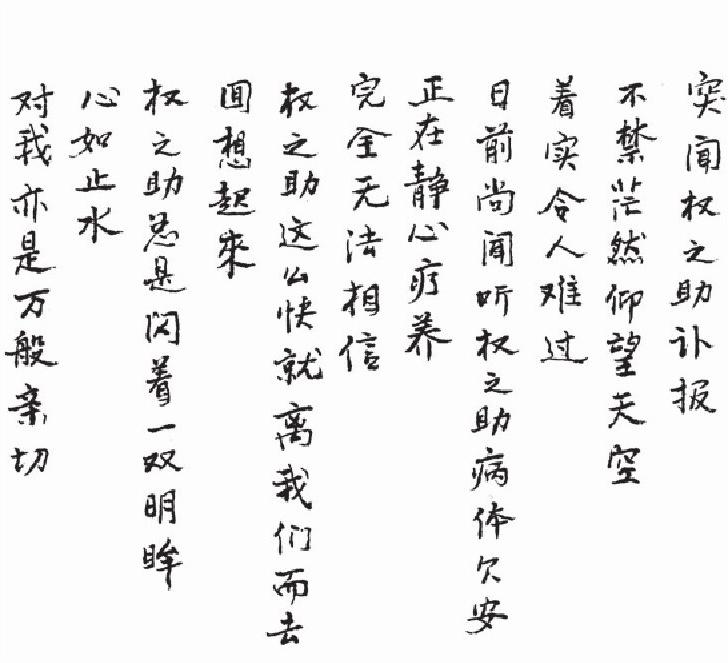 突闻权之助讣报
不禁茫然仰望天空
着实令人难过
日前尚闻听权之助病体欠安
正在静心疗养
完全无法相信
权之助这么快就离我们而去
回想起來
权之助总是闪着一双明眸
心如止水
对我亦是万般亲切